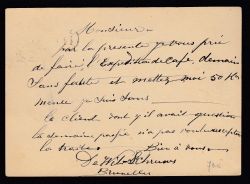 Monsieur
par la présente je vous prie
de faire l'Expédition de Café, demain
sans faute et mettez moi 50 K
même je suis sans
le client dont y'il avait question
la semaine passée n'a pas voulu accepter
la traite. Bien à vous
De Wit
Bruxelles